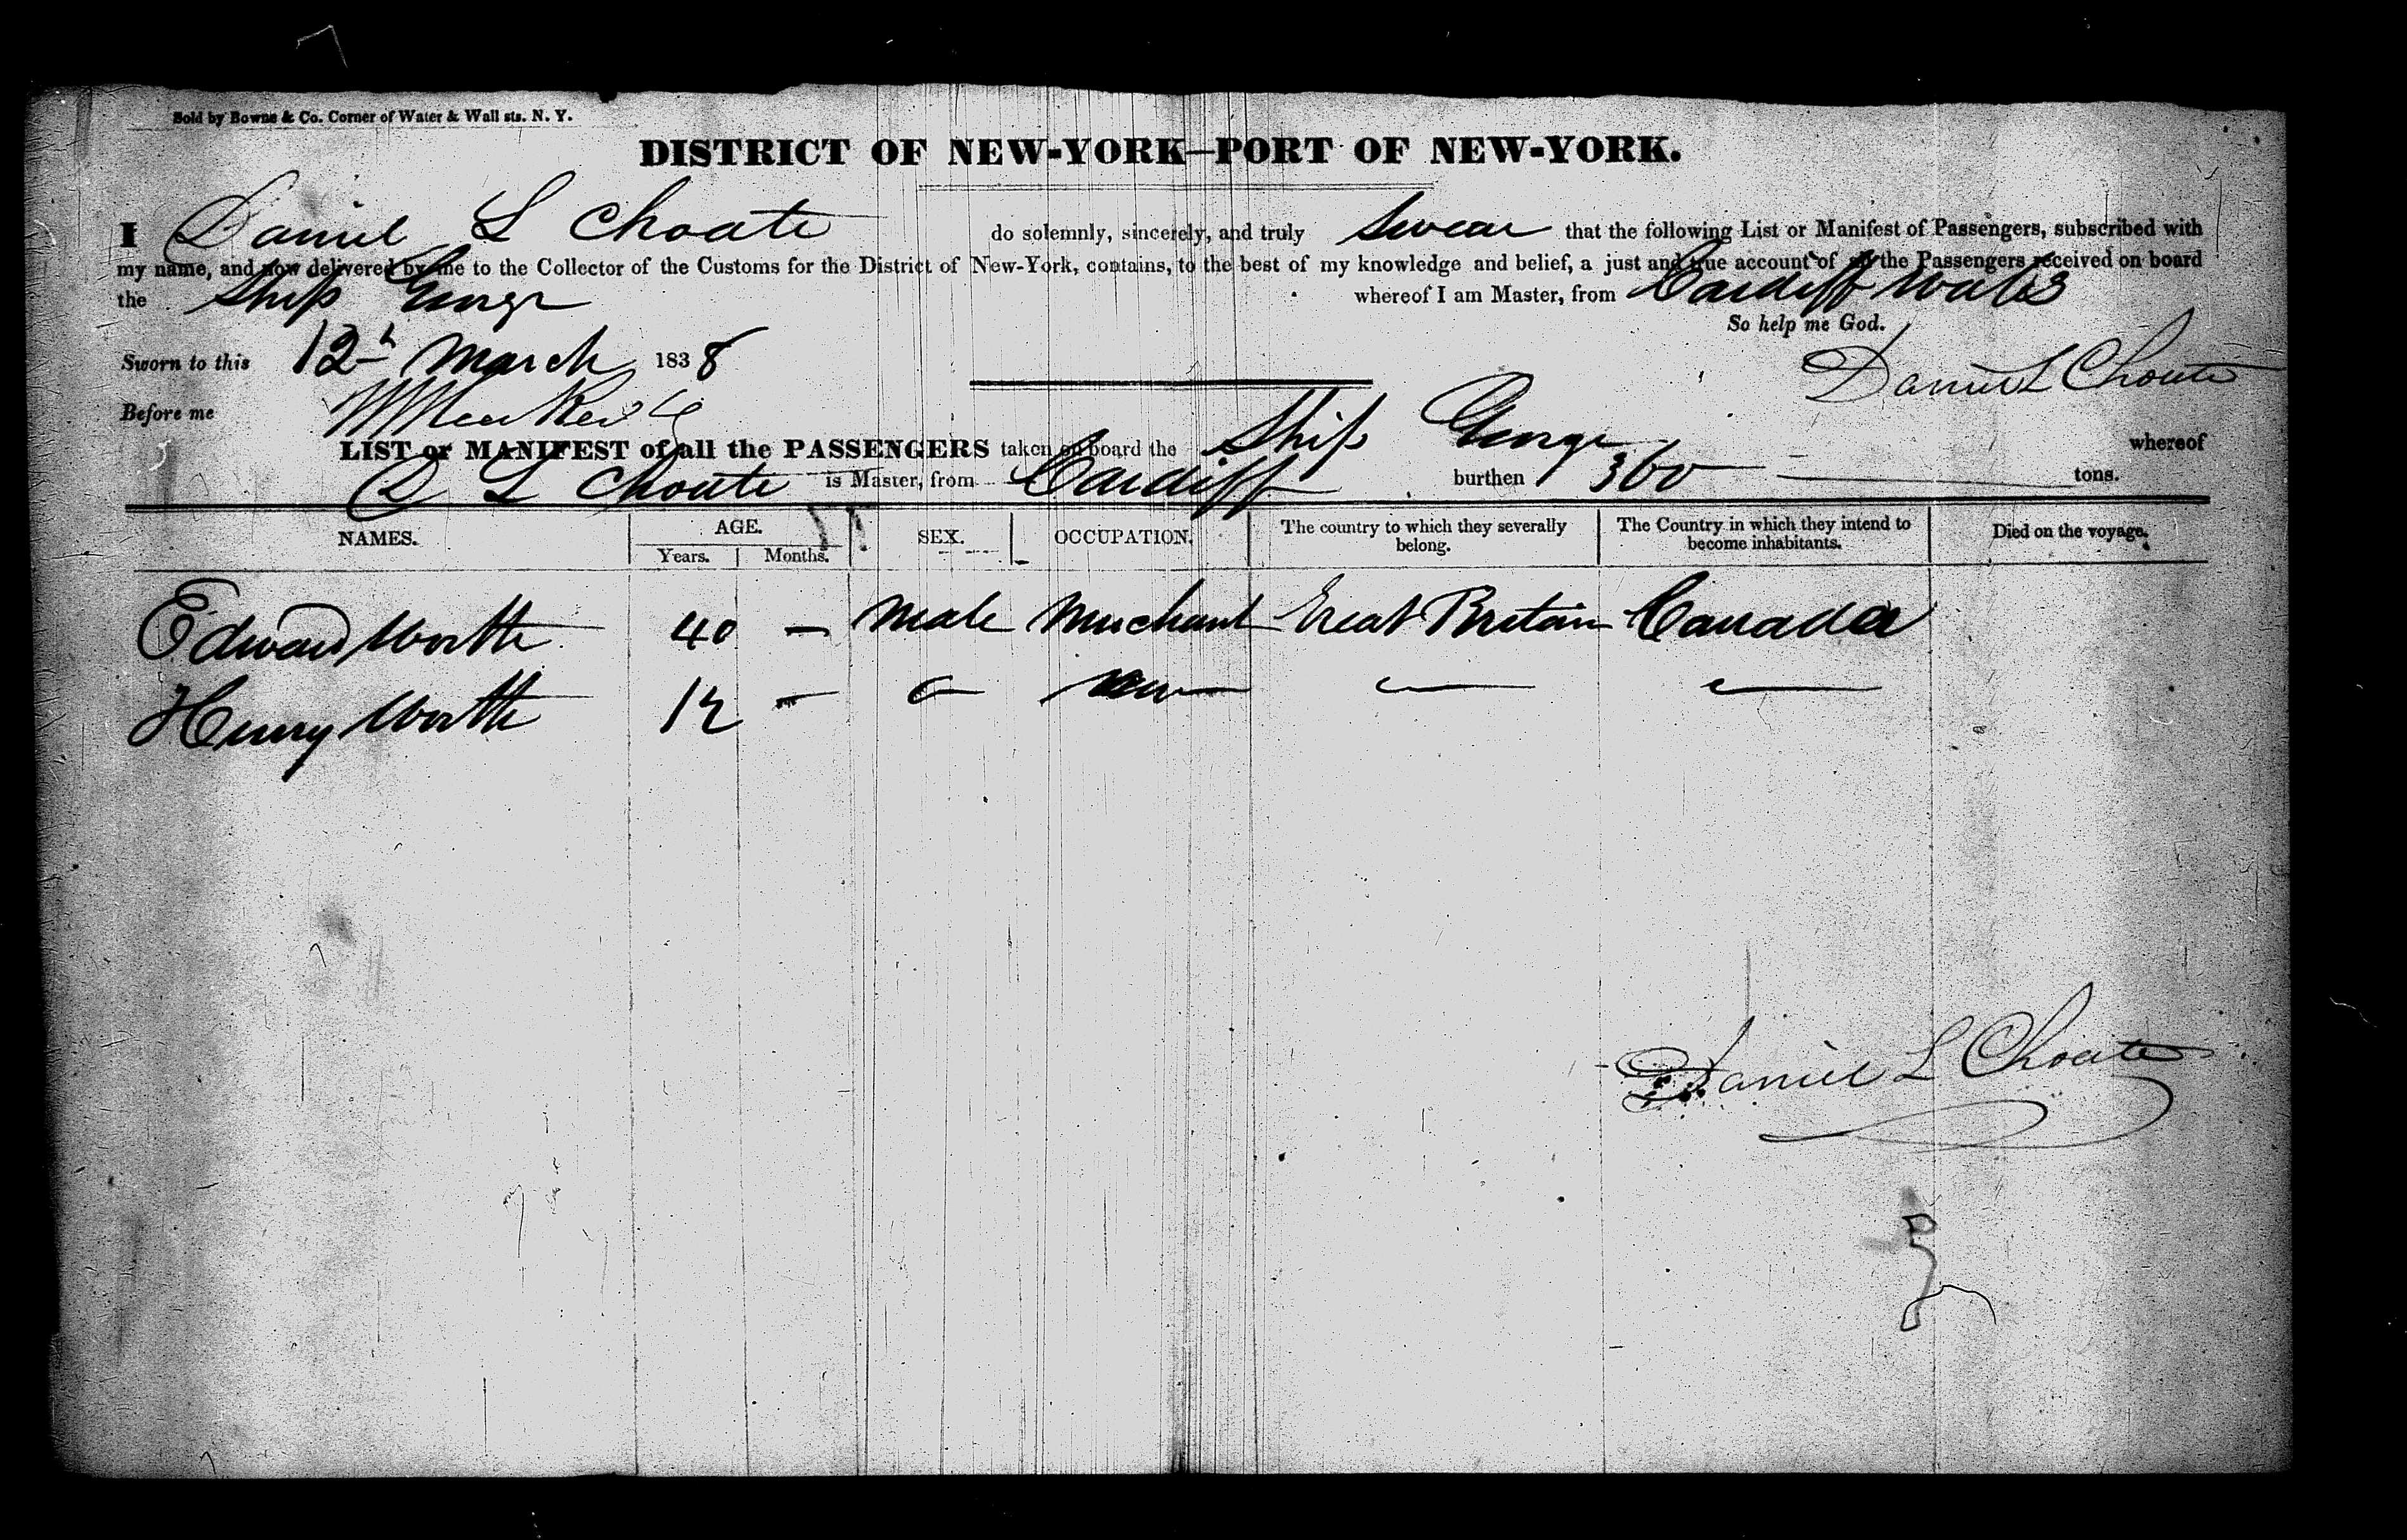 Sold by Bowne & Co. Corner of Water & Wall sts. N. Y.
DISTRICT OF NEW-YORK—PORT OF NEW-YORK.
I Daniel L Choate do solemnly, sincerely, and truly swear that the following List or Manifest of Passengers, subscribed with
my name, and now delivered by me to the Collector of the Customs for the District of New-York, contains, to the best of my knowledge and belief, a just and true account of all the Passengers received on board
the Ship George whereof I am Master, from Cardiff Wales
So help me God.
Sworn to this 12th March 1838
Daniel L Choate
Before me
LIST or MANIFEST of all the PASSENGERS taken on board the Ship George whereof
D L Choate is Master, from Cardiff burthen 360 tons.
NAMES. AGE. SEX. OCCUPATION. The country to which they severally belong. The Country in which they intend to become inhabitants. Died on the voyage.
Years. Months.
Edward Worth 40 — Male Merchant Great Britain Canada
Henry Worth 12 —
Daniel L Choate